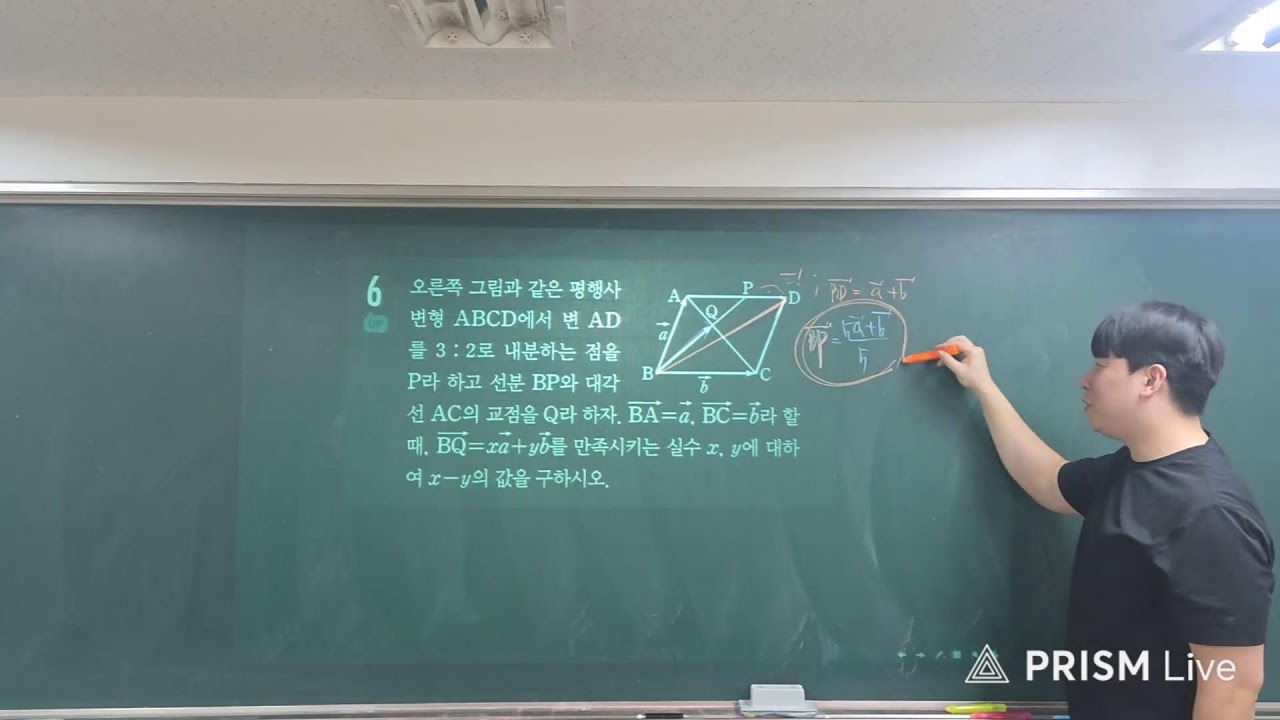 6
UP
오른쪽 그림과 같은 평행사
변형 ABCD에서 변 AD
를 3 : 2로 내분하는 점을
P라 하고 선분 BP와 대각
선 AC의 교점을 Q라 하자. BA=a, BC=b라 할
때, BQ=xa+yb를 만족시키는 실수 x, y에 대하
여 x-y의 값을 구하시오.
A P D
Q
a
B C
b
BD = a+b
BP = 5a+b
5
PRISM Live